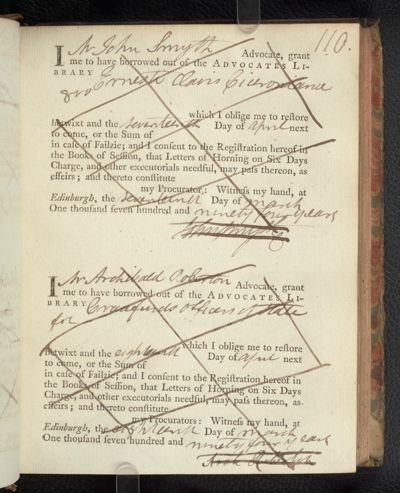 110.
I Mr John Smyth Advocate, grant
me to have borrowed out of the ADVOCATES LI-
BRARY
8vo Ernesti Clavis Ciceroniana
which I oblige me to reſtore
betwixt and the seventeenth Day of April next
to come, or the Sum of
in caſe of Failzie; and I conſent to the Regiſtration hereof in
the Books of Seſſion, that Letters of Horning on Six Days
Charge, and other executorials needful, may paſs thereon, as
effeirs; and thereto conſtitute
my Procurators: Witneſs my hand, at
Edinburgh, the seventeenth Day of march
One thouſand ſeven hundred and ninety four years
John Smyth
I Mr Archibald Robertson Advocate, grant
me to have borrowed out of the ADVOCATES LI-
BRARY Crawfurds officers of State
for
which I oblige me to reſtore
betwixt and the eighteenth Day of April next
to come, or the Sum of
in caſe of Failzie; and I conſent to the Regiſtration hereof in
the Books of Seſſion, that Letters of Horning on Six Days
Charge, and other executorials needful, may paſs thereon, as
effeirs; and thereto conſtitute
my Procurators: Witneſs my hand, at
Edinburgh, the eighteenth Day of march
One thouſand ſeven hundred and ninety four years
Arch Robertson